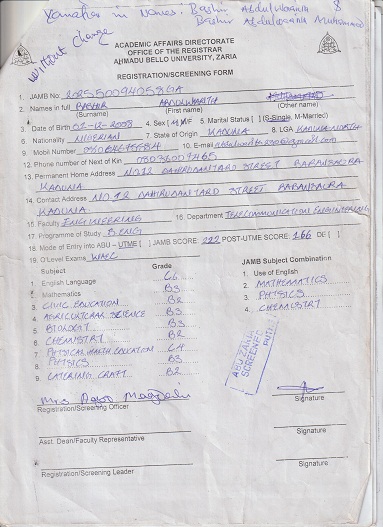 Variation in Names: Bashir Abdulwarith &
Bashir Abdulwarith Muhammad
without change
ACADEMIC AFFAIRS DIRECTORATE
OFFICE OF THE REGISTRAR
AHMADU BELLO UNIVERSITY, ZARIA
REGISTRATION/SCREENING FORM
1. JAMB No:
2. Names in full BASHIR ABDULWARITH
(Surname) (First name) (Other name)
3. Date of Birth 02-12-2008 4. Sex [M]/F 5. Marital Status [S-Single, M-Married)
6. Nationality NIGERIAN 7. State of Origin KADUNA 8. LGA KADUNA NORTH
9. Mobil Number 10. E-mail
12. Phone number of Next of Kin 08036007465
13. Permanent Home Address NO 12 STREET
KADUNA
14. Contact Address NO 12 STREET
KADUNA
15. Faculty ENGINEERING 16. Department TELECOMMUNICATION ENGINEERING
17. Programme of Study B.ENG
18. Mode of Entry into ABU - UTME [ ] JAMB SCORE: 222 POST-UTME SCORE: 166 DE [ ]
19. O'Level Exams WAEC
Subject Grade
1. English Language C6
2. Mathematics B3
3. CIVIC EDUCATION B2
4. AGRICULTURAL SCIENCE B3
5. BIOLOGY B3
6. CHEMISTRY B2
7. PHYSICAL HEALTH EDUCATION C4
8. PHYSICS B3
9. CATERING CRAFT B2
JAMB Subject Combination
1. Use of English
2. MATHEMATICS
3. PHYSICS
4. CHEMISTRY
ABU ZARIA
Mrs
Registration/Screening Officer
Signature
Asst. Dean/Faculty Representative
Signature
Registration/Screening Leader
Signature